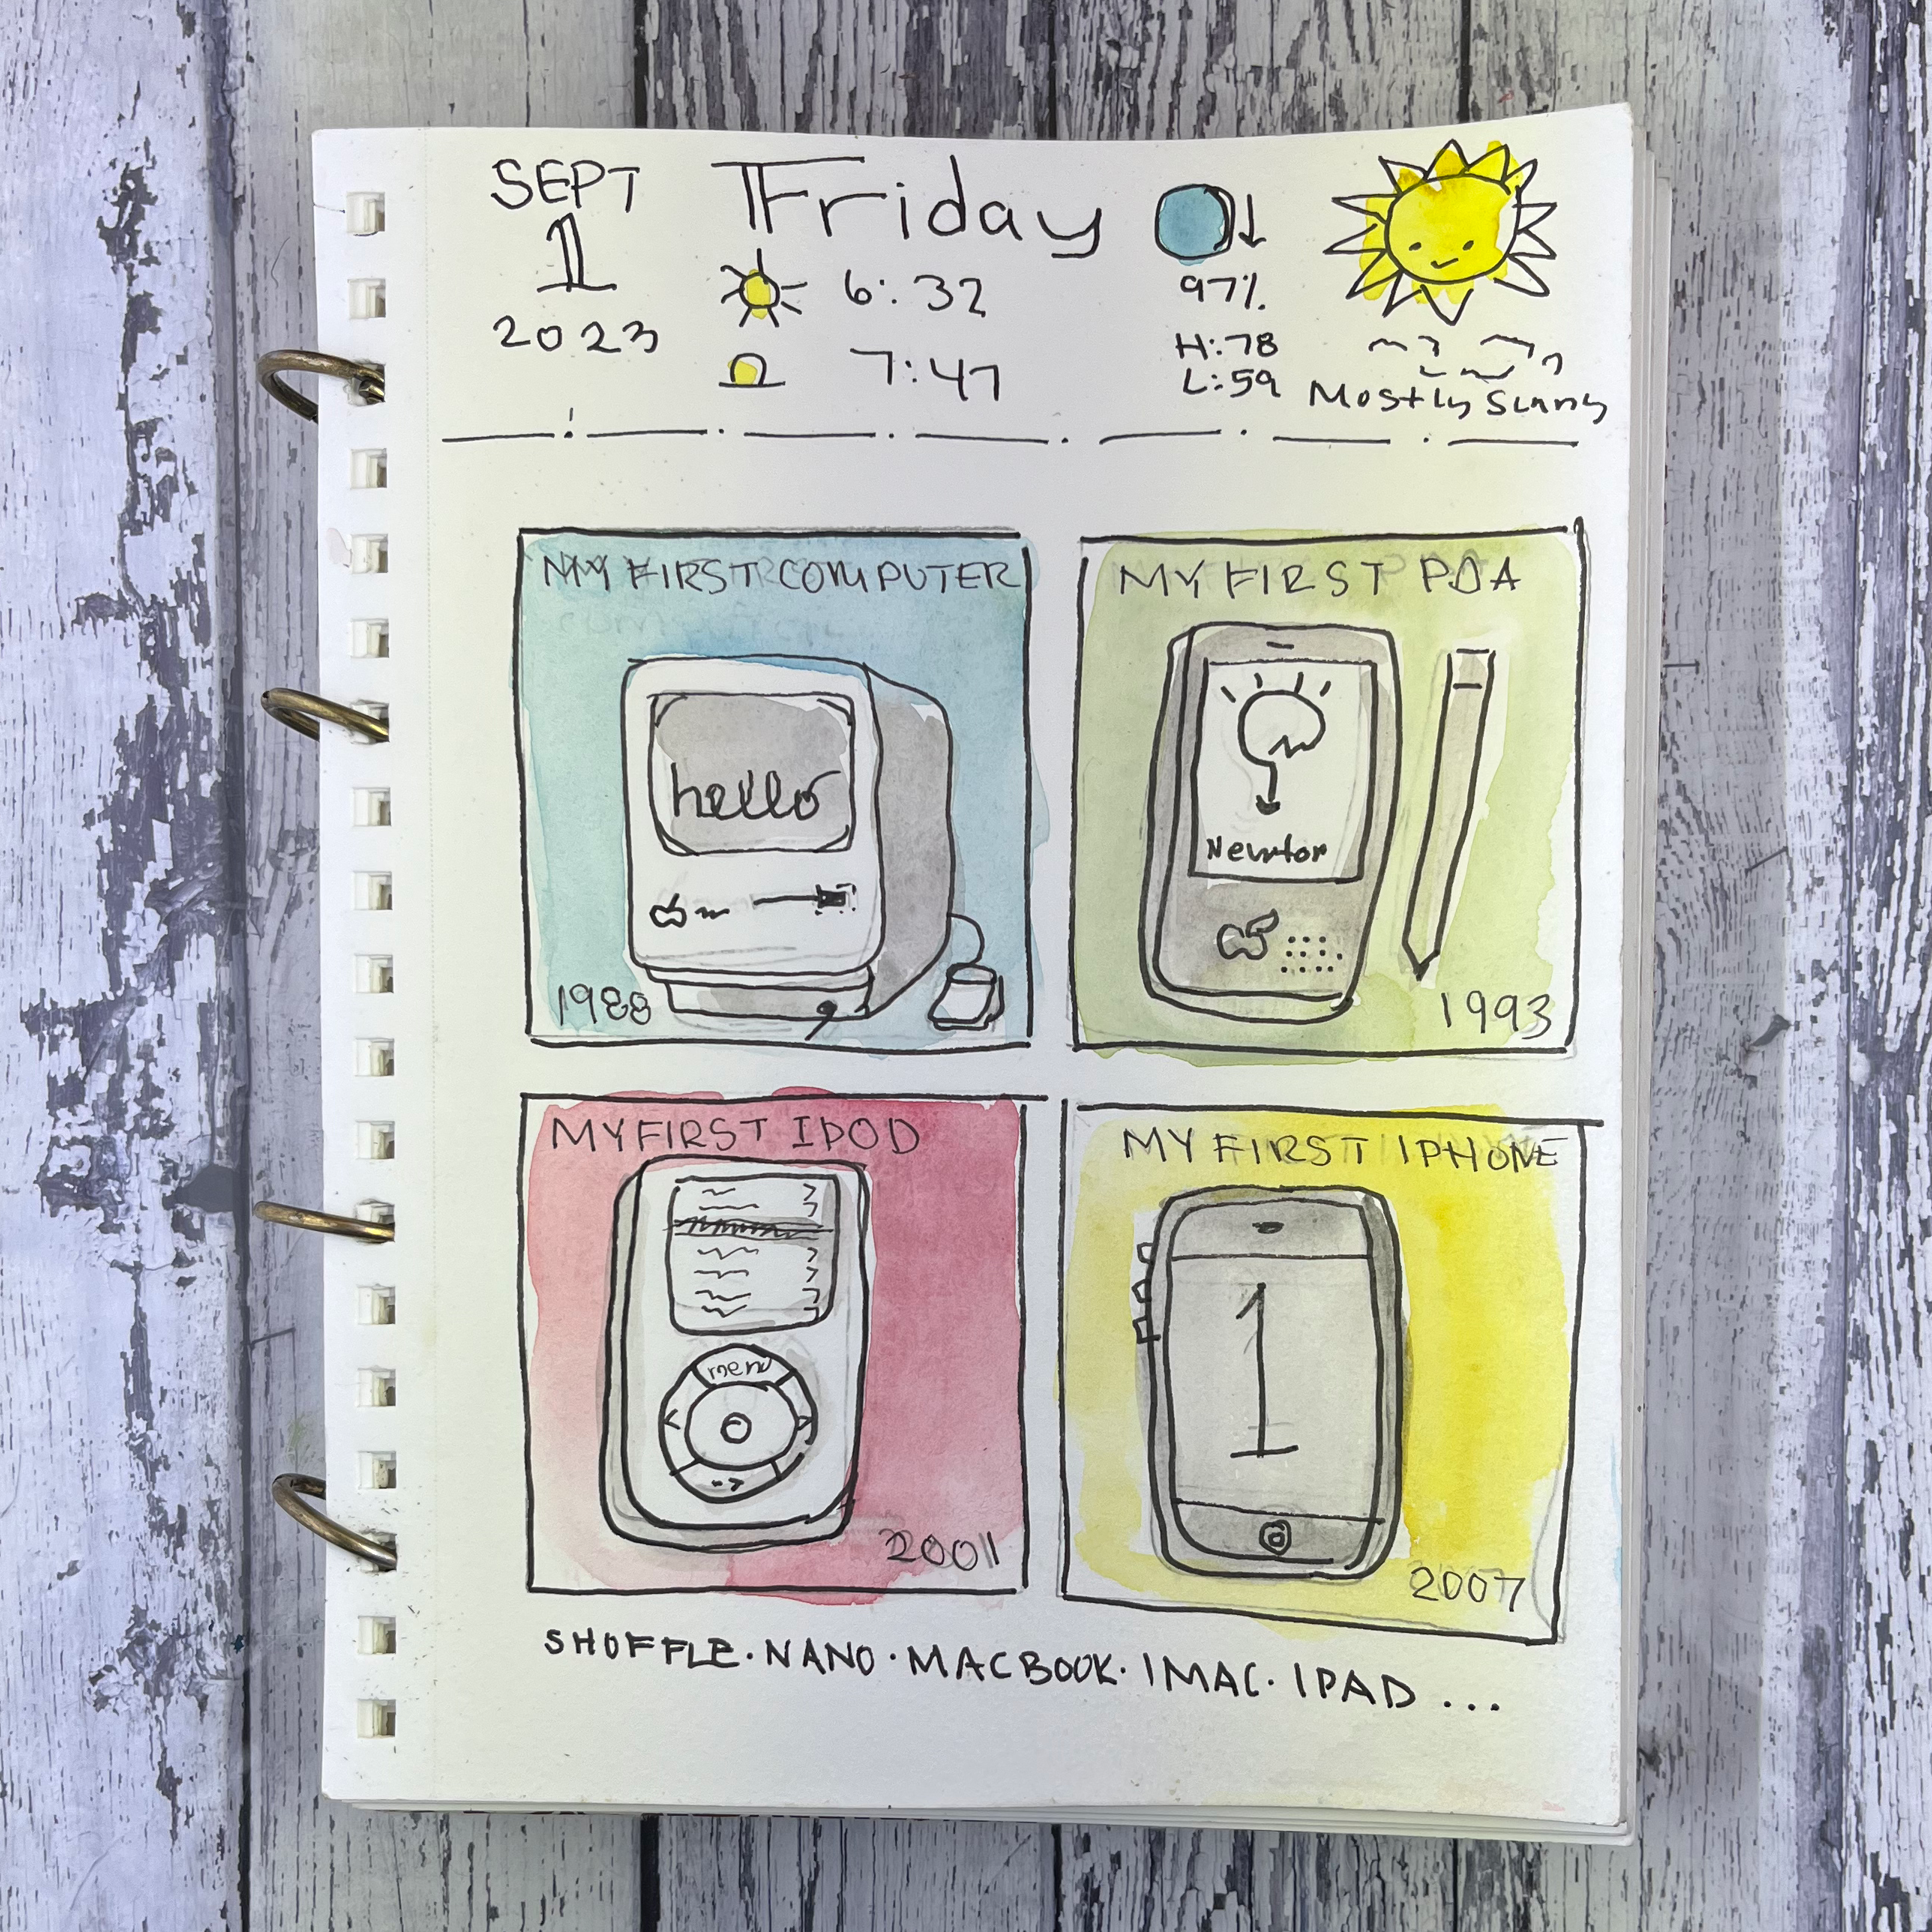 SEPT
1
2023
Friday
6:32
7:47
97%
H:78
L:59
Mostly Sunny
MY FIRST COMPUTER
hello
1988
MY FIRST PDA
Newton
1993
MY FIRST IPOD
menu
2001
MY FIRST IPHONE
1
2007
SHUFFLE · NANO · MACBOOK · IMAC · IPAD ...